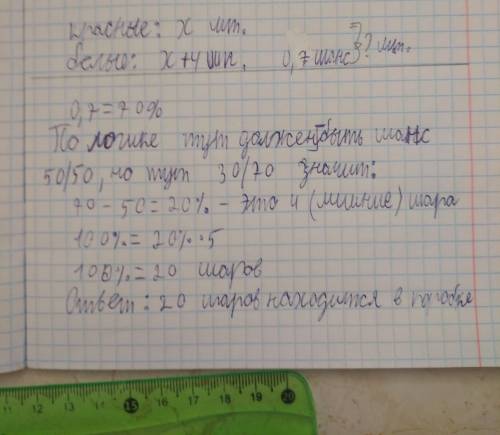 красные: x шт.
белые: x+4 шт. 0,7 шанс } ? шт.
0,7=70%
По логике тут должен быть шанс
50/50, но тут 30/70 значит:
70-50=20% - это 4 (лишние) шара
100%=20%·5
100%=20 шаров
Ответ: 20 шаров находится в коробке
11 12 13 14 15 16 17 18 19 20